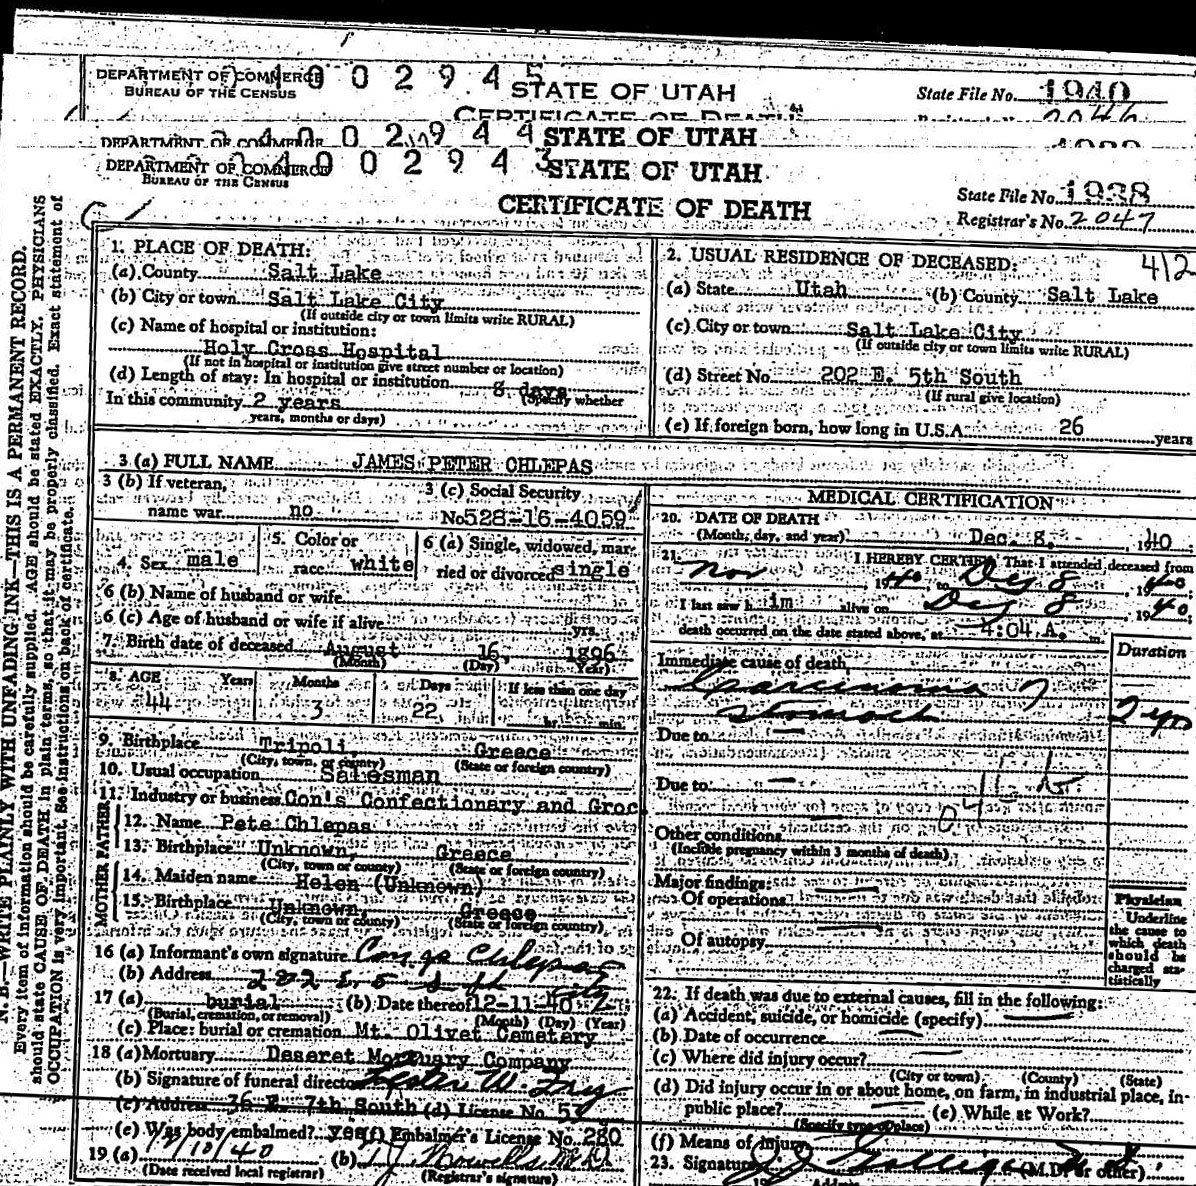 DEPARTMENT OF COMMERCE
BUREAU OF THE CENSUS
4 0 0 2 9 4 5
STATE OF UTAH
State File No. 1940
CERTIFICATE OF DEATH
2046
DEPARTMENT OF COMMERCE
4 0 0 2 9 4 4
STATE OF UTAH
DEPARTMENT OF COMMERCE
BUREAU OF THE CENSUS
4 0 0 2 9 4 3
STATE OF UTAH
CERTIFICATE OF DEATH
State File No. 1938
Registrar's No. 2047
N. B.—WRITE PLAINLY WITH UNFADING INK—THIS IS A PERMANENT RECORD.
Every item of information should be carefully supplied. AGE should be stated EXACTLY. PHYSICIANS
should state CAUSE OF DEATH in plain terms, so that it may be properly classified. Exact statement of
OCCUPATION is very important. See instructions on back of certificate.
1. PLACE OF DEATH:
(a) County Salt Lake
(b) City or town Salt Lake City
(If outside city or town limits write RURAL)
(c) Name of hospital or institution:
Holy Cross Hospital
(If not in hospital or institution give street number or location)
(d) Length of stay: In hospital or institution 8 days
(Specify whether
In this community 2 years
years, months or days)
2. USUAL RESIDENCE OF DECEASED: 412
(a) State Utah (b) County Salt Lake
(c) City or town Salt Lake City
(If outside city or town limits write RURAL)
(d) Street No. 202 E. 5th South
(If rural give location)
(e) If foreign born, how long in U.S.A. 26 years
3 (a) FULL NAME JAMES PETER CHLEPAS
3 (b) If veteran,
name war no
3 (c) Social Security
No. 528-16-4059
4. Sex male
5. Color or
race white
6 (a) Single, widowed, mar-
ried or divorced single
6 (b) Name of husband or wife
6 (c) Age of husband or wife if alive yrs.
7. Birth date of deceased August 16, 1896
(Month) (Day) (Year)
8. AGE Years Months Days If less than one day
44 3 22 hr. min.
9. Birthplace Tripoli, Greece
(City, town, or county) (State or foreign country)
10. Usual occupation Salesman
11. Industry or business Con's Confectionary and Groc.
FATHER
12. Name Pete Chlepas
13. Birthplace Unknown, Greece
(City, town or county) (State or foreign country)
MOTHER
14. Maiden name Helen (Unknown)
15. Birthplace Unknown, Greece
(City, town or county) (State or foreign country)
16 (a) Informant's own signature Chlepas
(b) Address 202 E. 5 City
17 (a) burial (b) Date thereof 12-11-40
(Burial, cremation, or removal) (Month) (Day) (Year)
(c) Place: burial or cremation Mt. Olivet Cemetery
18 (a) Mortuary Deseret Mortuary Company
(b) Signature of funeral director W.
(c) Address 36 E. 7th South (d) License No. 57
(e) Was body embalmed? yes (f) Embalmer's License No. 280
19 (a) 12/10/40 (b)
(Date received local registrar) (Registrar's signature)
MEDICAL CERTIFICATION
20. DATE OF DEATH
(Month, day, and year) Dec. 8, 1940
21. I HEREBY CERTIFY That I attended deceased from
Nov 1940 to Dec 8, 1940
I last saw him alive on Dec 8, 1940
death occurred on the date stated above, at 4:04 A. m.
Duration
Immediate cause of death
Carcinoma of
stomach 2 yrs
Due to
Due to
Other conditions
(Include pregnancy within 3 months of death)
Major findings:
Of operations
Of autopsy
Physician
Underline
the cause to
which death
should be
charged sta-
tistically
22. If death was due to external causes, fill in the following:
(a) Accident, suicide, or homicide (specify)
(b) Date of occurrence
(c) Where did injury occur?
(City or town) (County) (State)
(d) Did injury occur in or about home, on farm, in industrial place, in
public place? (e) While at Work?
(Specify type of place)
(f) Means of injury
23. Signature (M.D. or other)